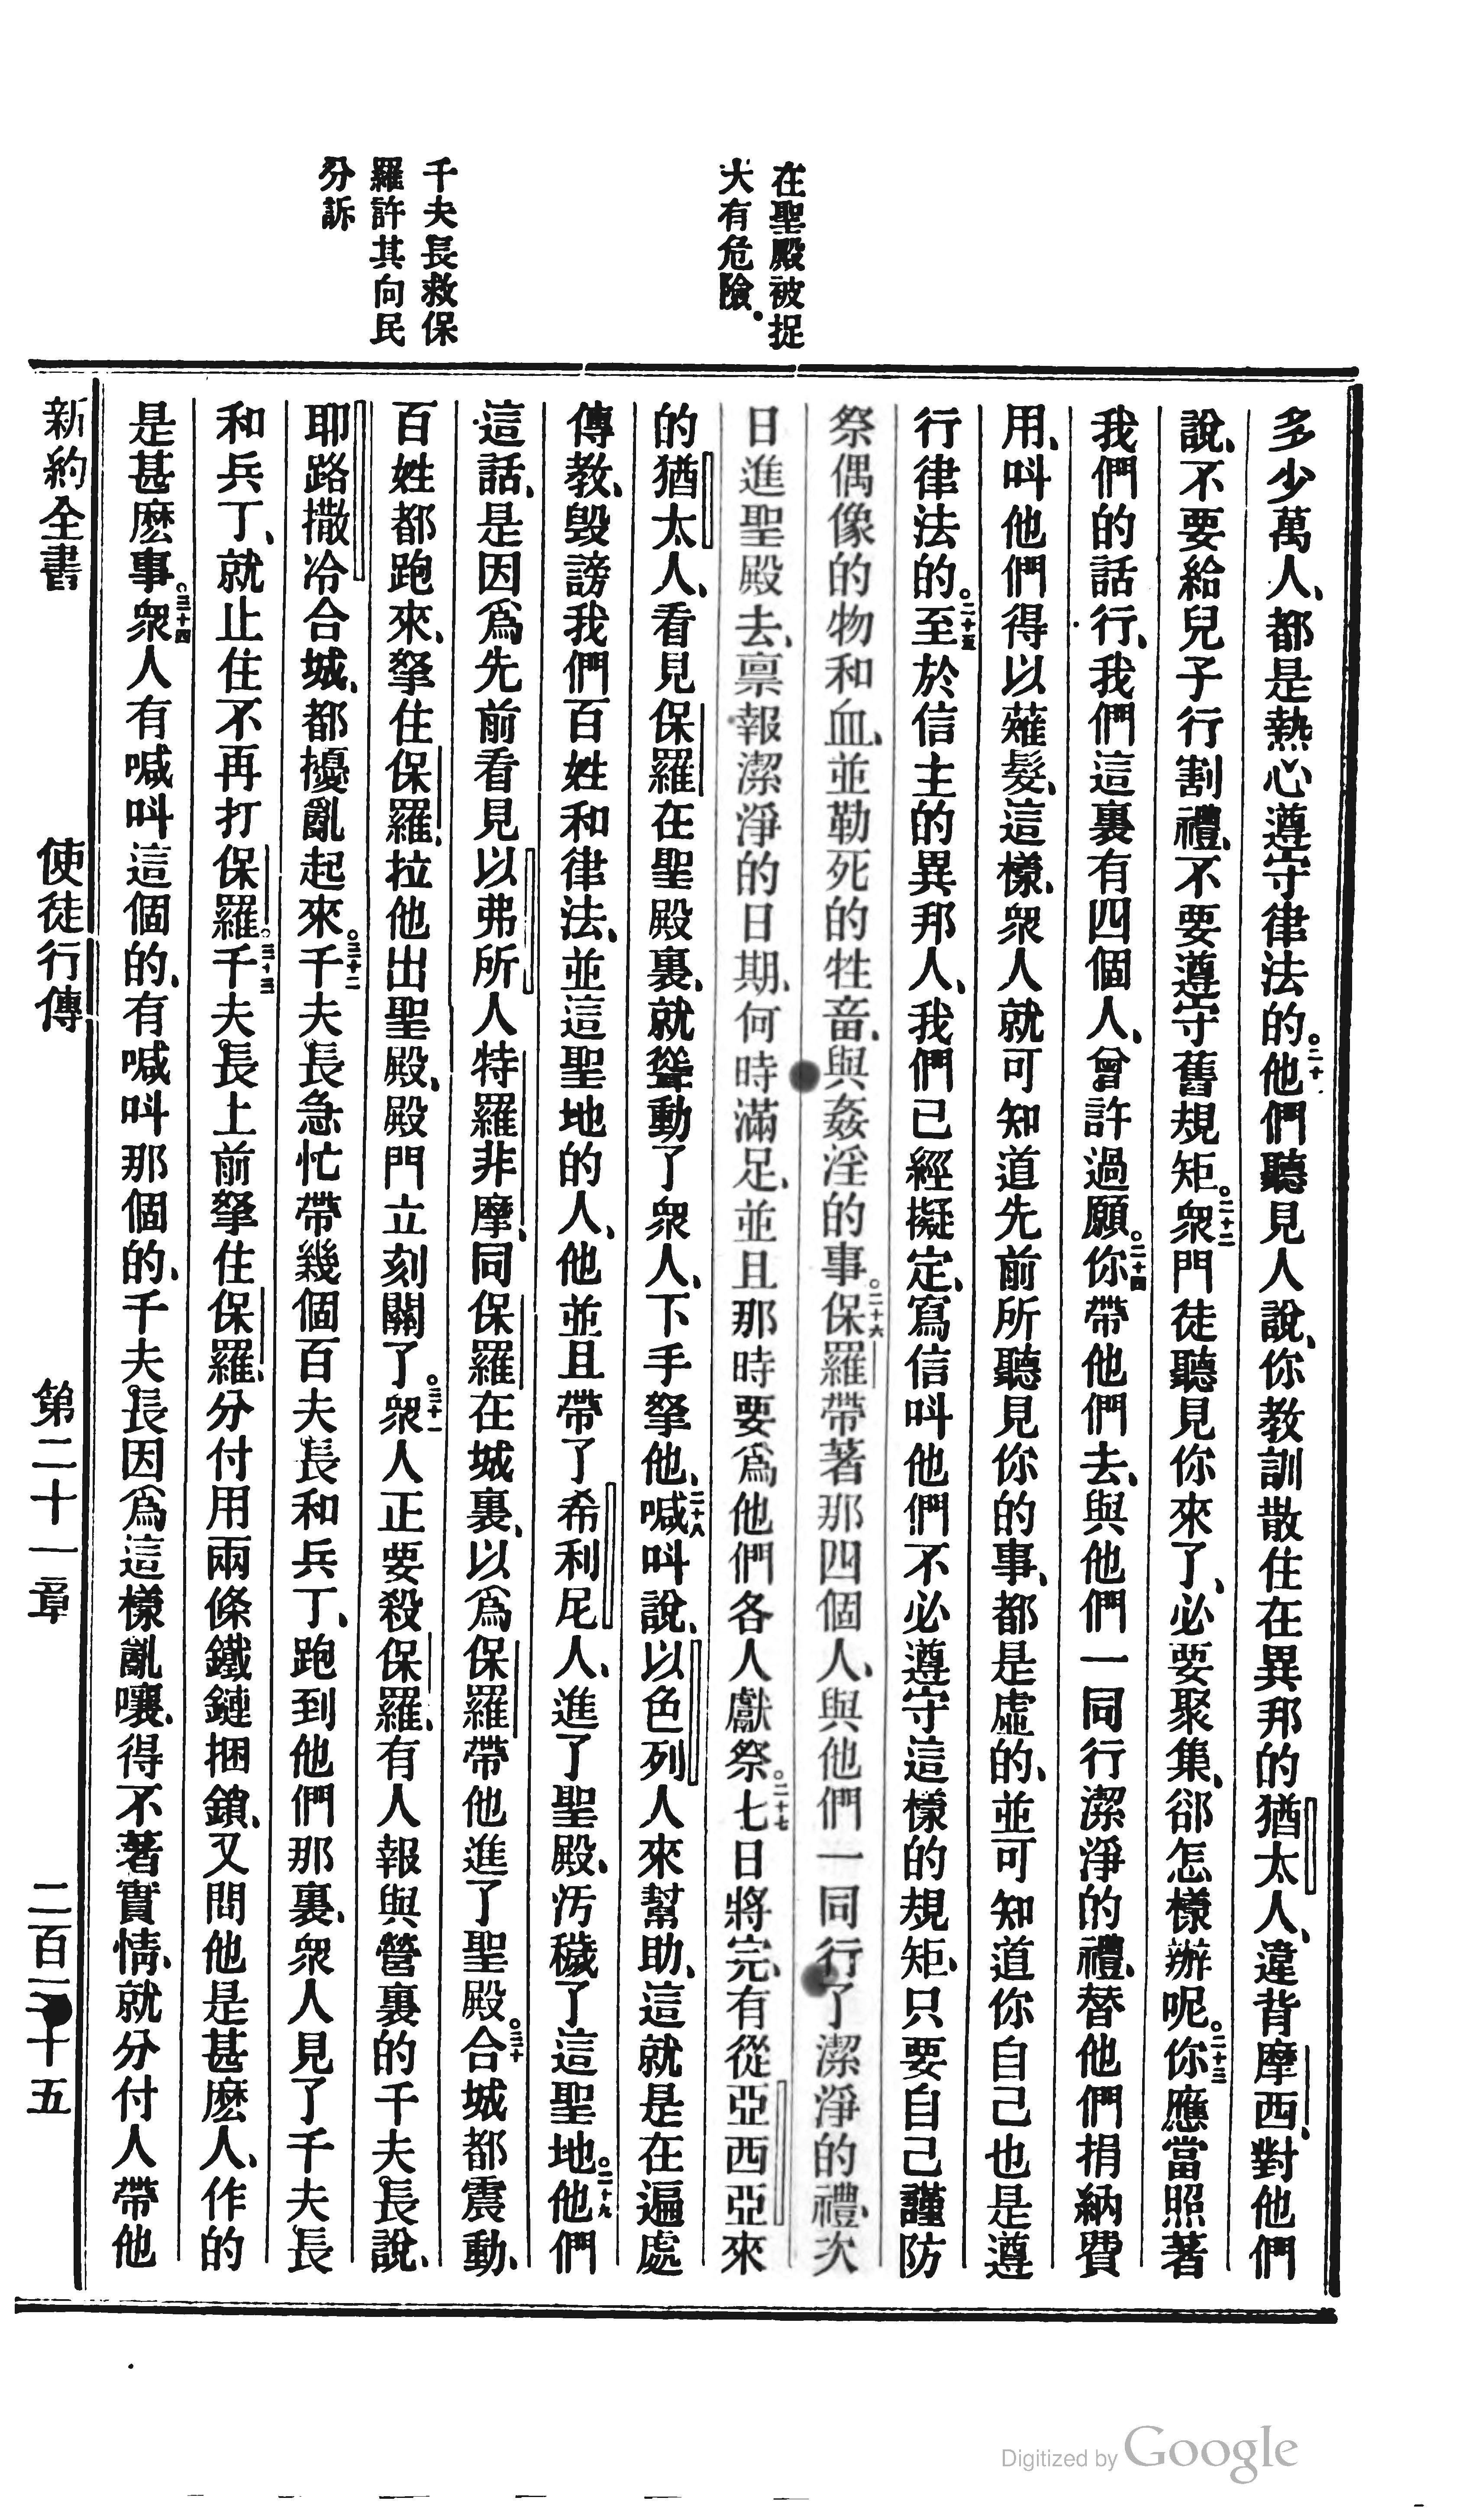 在聖殿被捉
大有危險。
千夫長救保
羅許其向民
分訴
多少萬人、都是熱心遵守律法的。二十一他們聽見人說、你教訓散住在異邦的猶太人、違背摩西、對他們
說、不要給兒子行割禮、不要遵守舊規矩。二十二衆門徒聽見你來了、必要聚集、郤怎樣辦呢。二十三你應當照著
我們的話行、我們這裏有四個人、曾許過願。二十四你帶他們去、與他們一同行潔淨的禮、替他們捐納費
用、叫他們得以薙髮、這樣、衆人就可知道先前所聽見你的事、都是虛的、並可知道你自己也是遵
行律法的。二十五至於信主的異邦人、我們已經擬定、寫信叫他們不必遵守這樣的規矩、只要自己謹防
祭偶像的物和血、並勒死的牲畜、與姦淫的事。二十六保羅帶著那四個人、與他們一同行了潔淨的禮、次
日進聖殿去、禀報潔淨的日期、何時滿足、並且那時要爲他們各人獻祭。二十七七日將完、有從亞西亞來
的猶太人、看見保羅在聖殿裏、就聳動了衆人、下手拏他、二十八喊叫說、以色列人來幫助、這就是在遍處
傳教、毀謗我們百姓和律法、並這聖地的人、他並且帶了希利尼人、進了聖殿、汚穢了這聖地。二十九他們
這話、是因爲先前看見以弗所人特羅非摩、同保羅在城裏、以爲保羅帶他進了聖殿。三十合城都震動、
百姓都跑來、拏住保羅、拉他出聖殿、殿門立刻關了。三十一衆人正要殺保羅、有人報與營裏的千夫長說、
耶路撒冷合城、都擾亂起來。三十二千夫長急忙帶幾個百夫長和兵丁、跑到他們那裏、衆人見了千夫長
和兵丁、就止住不再打保羅。三十三千夫長上前拏住保羅、分付用兩條鐵鏈捆鎖、又問他是甚麽人、作的
是甚麽事。三十四衆人有喊叫這個的、有喊叫那個的、千夫長因爲這樣亂嚷、得不著實情、就分付人帶他
新約全書　使徒行傳　第二十一章　二百三十五
Digitized by Google